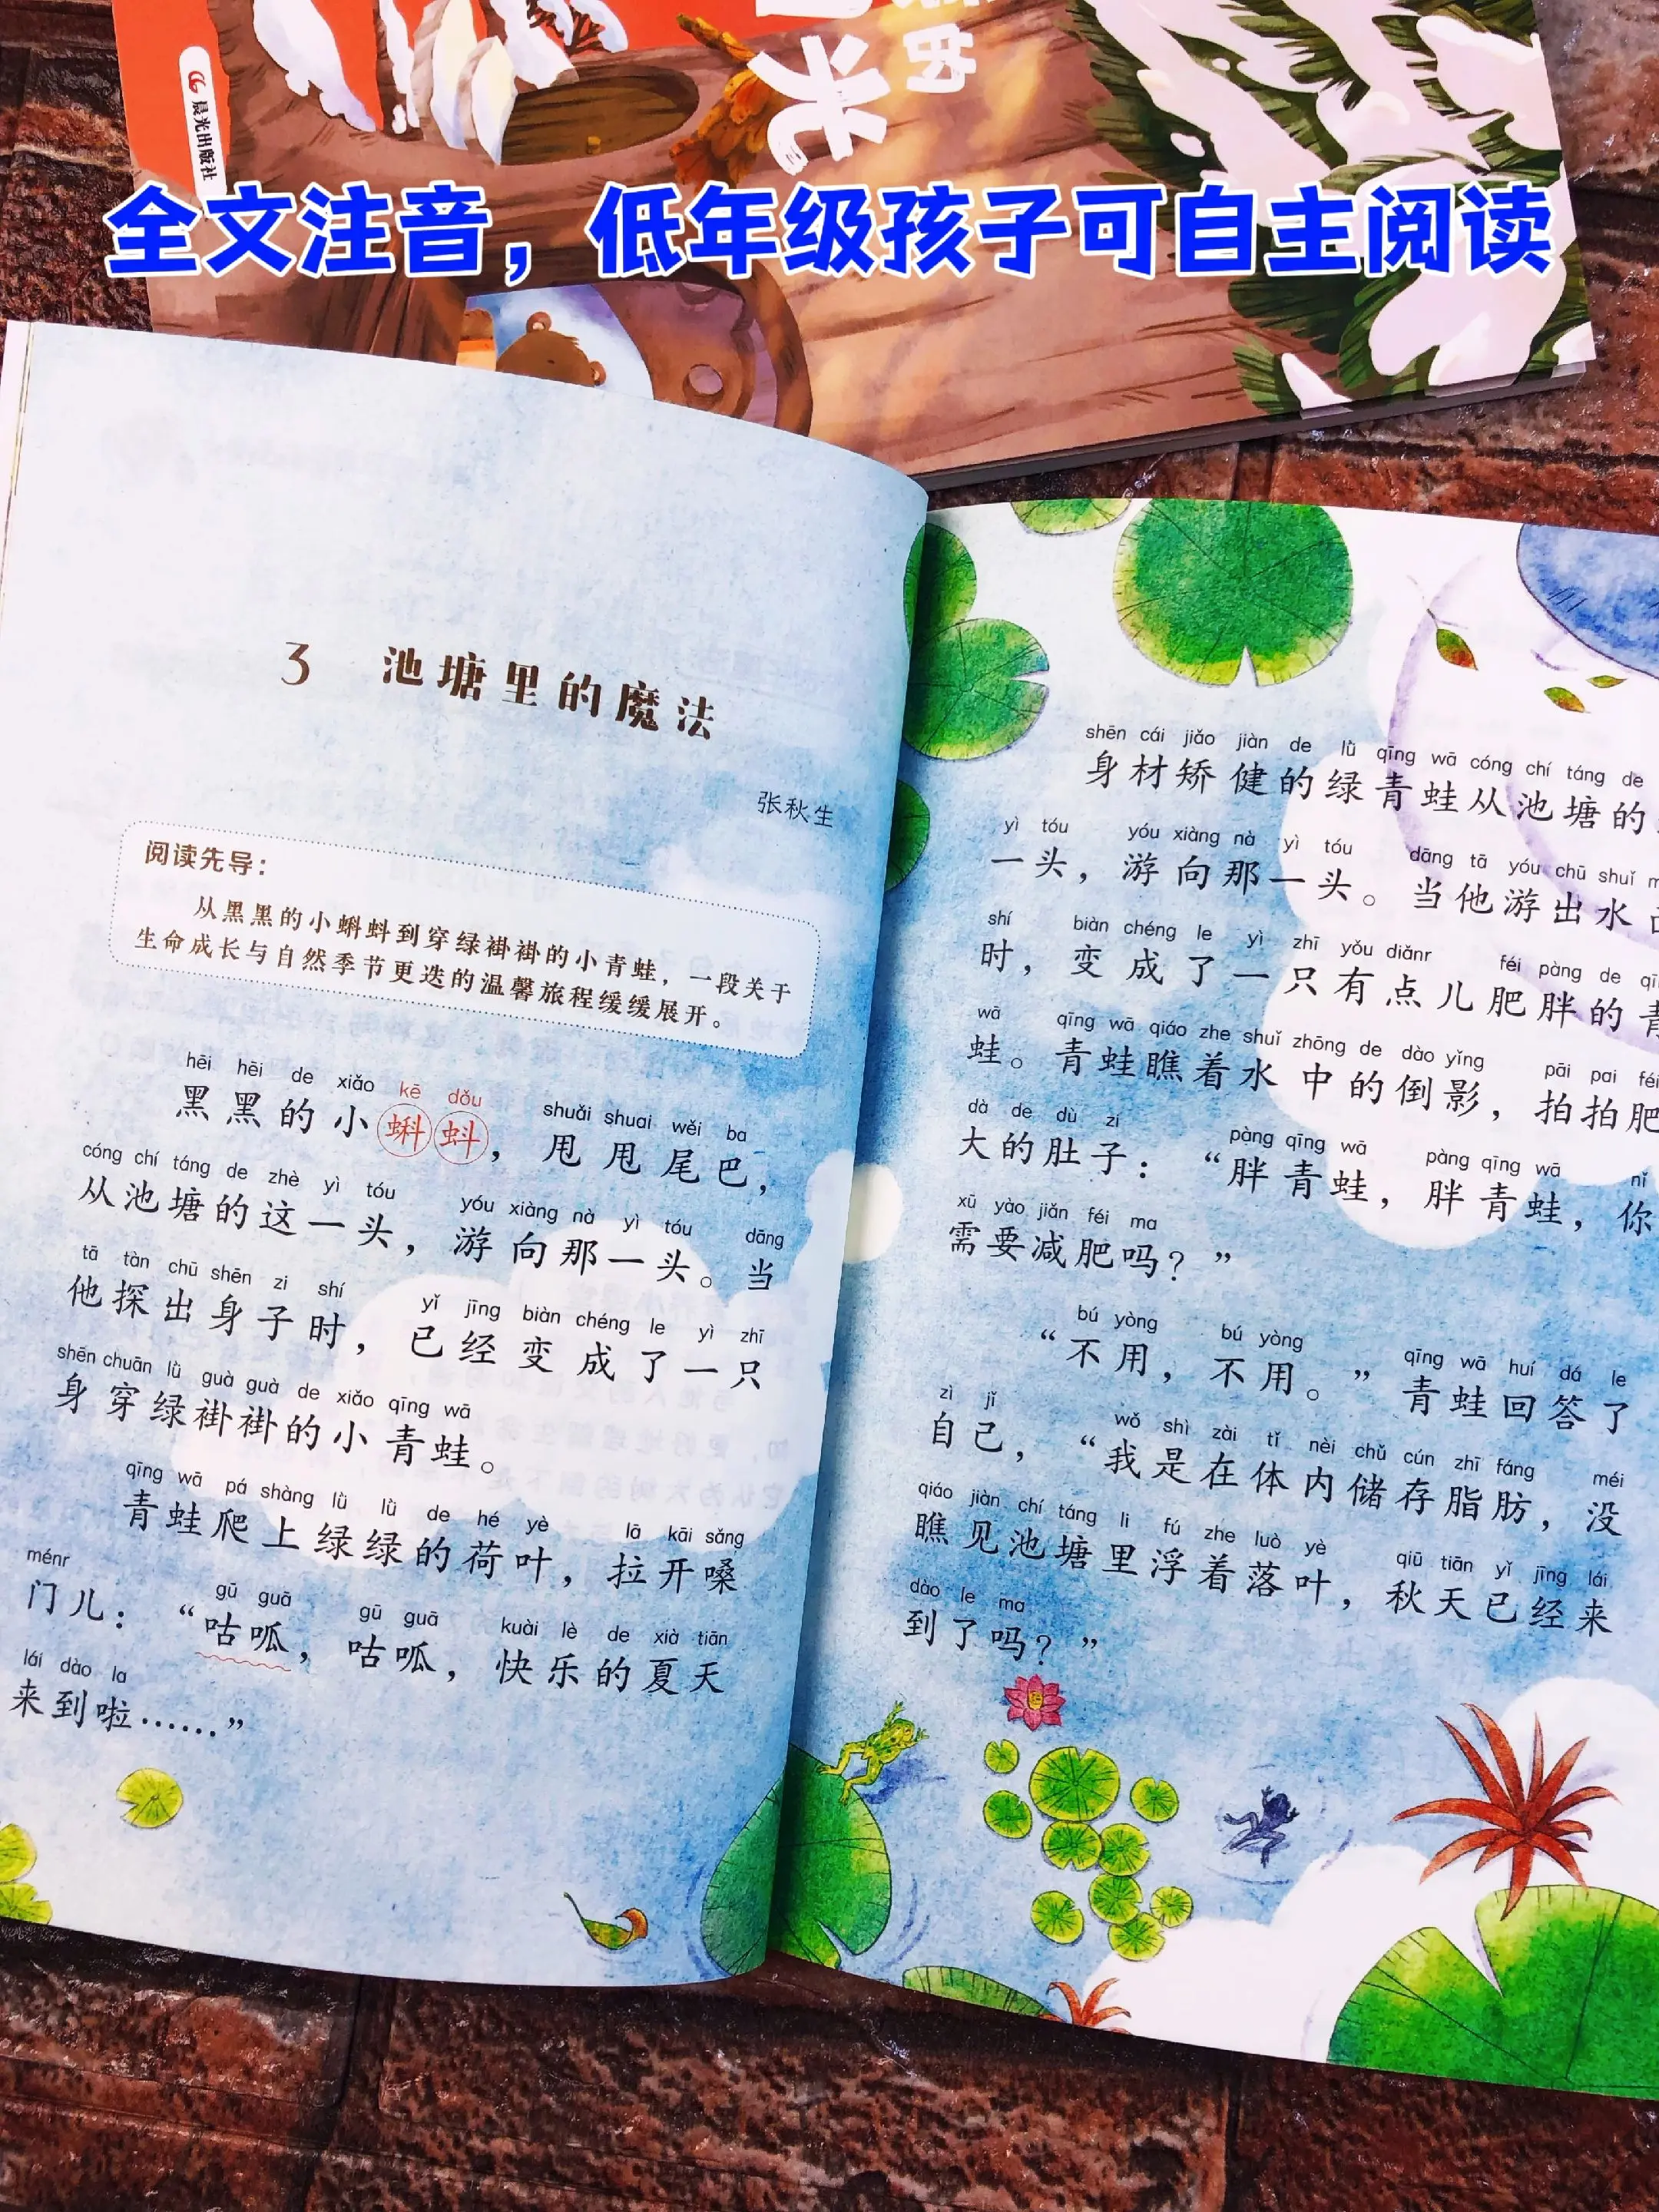 晨光出版社
全文注音，低年级孩子可自主阅读
3 池塘里的魔法
张秋生
阅读先导：
从黑黑的小蝌蚪到穿绿褂褂的小青蛙，一段关于
生命成长与自然季节更迭的温馨旅程缓缓展开。
hēi hēi de xiǎo kē dǒu shuǎi shuai wěi ba
黑黑的小蝌蚪，甩甩尾巴，
cóng chí táng de zhè yì tóu yóu xiàng nà yì tóu dāng
从池塘的这一头，游向那一头。当
tā tàn chū shēn zi shí yǐ jīng biàn chéng le yì zhī
他探出身子时，已经变成了一只
shēn chuān lǜ guà guà de xiǎo qīng wā
身穿绿褂褂的小青蛙。
qīng wā pá shàng lǜ lǜ de hé yè lā kāi sǎng
青蛙爬上绿绿的荷叶，拉开嗓
ménr gū guā gū guā kuài lè de xià tiān
门儿：“咕呱，咕呱，快乐的夏天
lái dào la
来到啦……”
shēn cái jiǎo jiàn de lǜ qīng wā cóng chí táng de
身材矫健的绿青蛙从池塘的
yì tóu yóu xiàng nà yì tóu dāng tā yóu chū shuǐ
一头，游向那一头。当他游出水
shí biàn chéng le yì zhī yǒu diǎnr féi pàng de
时，变成了一只有点儿肥胖的青
wā qīng wā qiáo zhe shuǐ zhōng de dào yǐng pāi pai féi
蛙。青蛙瞧着水中的倒影，拍拍肥
dà de dù zi pàng qīng wā pàng qīng wā nǐ
大的肚子：“胖青蛙，胖青蛙，你
xū yào jiǎn féi ma
需要减肥吗？”
bú yòng bú yòng qīng wā huí dá le
“不用，不用。”青蛙回答了
zì jǐ wǒ shì zài tǐ nèi chǔ cún zhī fáng méi
自己，“我是在体内储存脂肪，没
qiáo jiàn chí táng li fú zhe luò yè qiū tiān yǐ jīng lái
瞧见池塘里浮着落叶，秋天已经来
dào le ma
到了吗？”